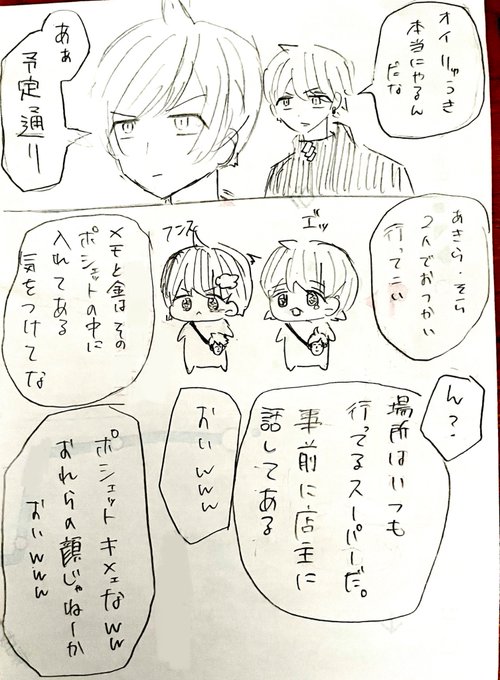 オイ りゅうき
本当にやるん
だな
あぁ
予定通り
あきら・そら
2人でおつかい
行ってこい
エッ
フンス
メモと金はその
ポシェットの中に
入れてある
気をつけてな
ん?
場所はいつも
行ってるスーパーだ。
事前に店主に
話してある
おいwww
ポシェットキメェなww
おれらの顔じゃねーか
おいwww